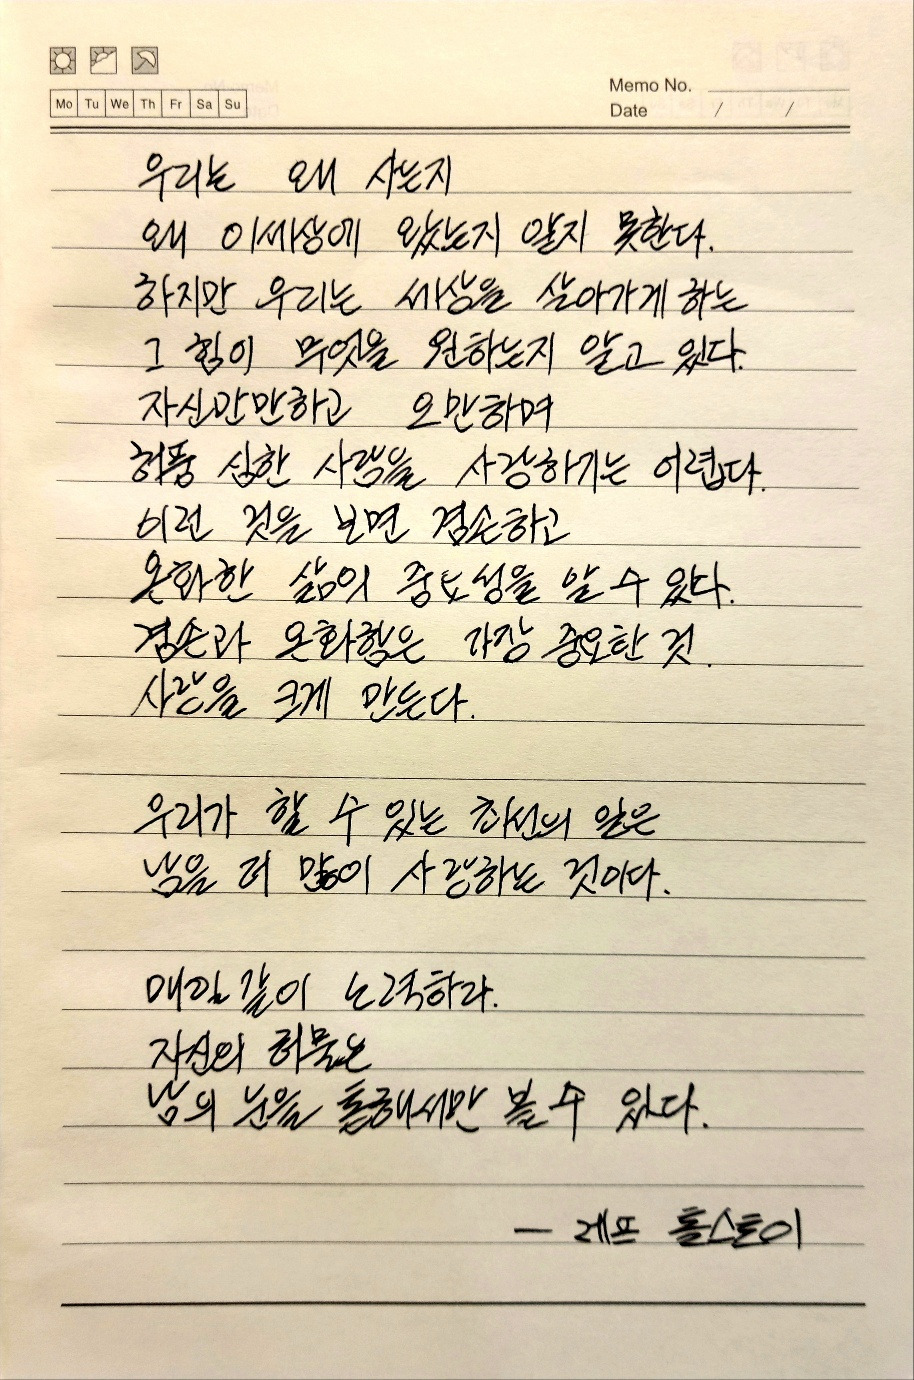 Mo Tu We Th Fr Sa Su
Memo No.
Date / /
우리는 왜 사는지
왜 이세상에 왔는지 알지 못한다.
하지만 우리는 세상을 살아가게 하는
그 힘이 무엇을 원하는지 알고 있다.
자신만만하고 오만하며
허풍 심한 사람을 사랑하기는 어렵다.
이런 것을 보면 겸손하고
온화한 삶의 중요성을 알 수 있다.
겸손과 온화함은 가장 중요한 것.
사람을 크게 만든다.
우리가 할 수 있는 최선의 일은
남을 더 많이 사랑하는 것이다.
매일같이 노력하라.
자신의 허물은
남의 눈을 통해서만 볼 수 있다.
— 레프 톨스토이